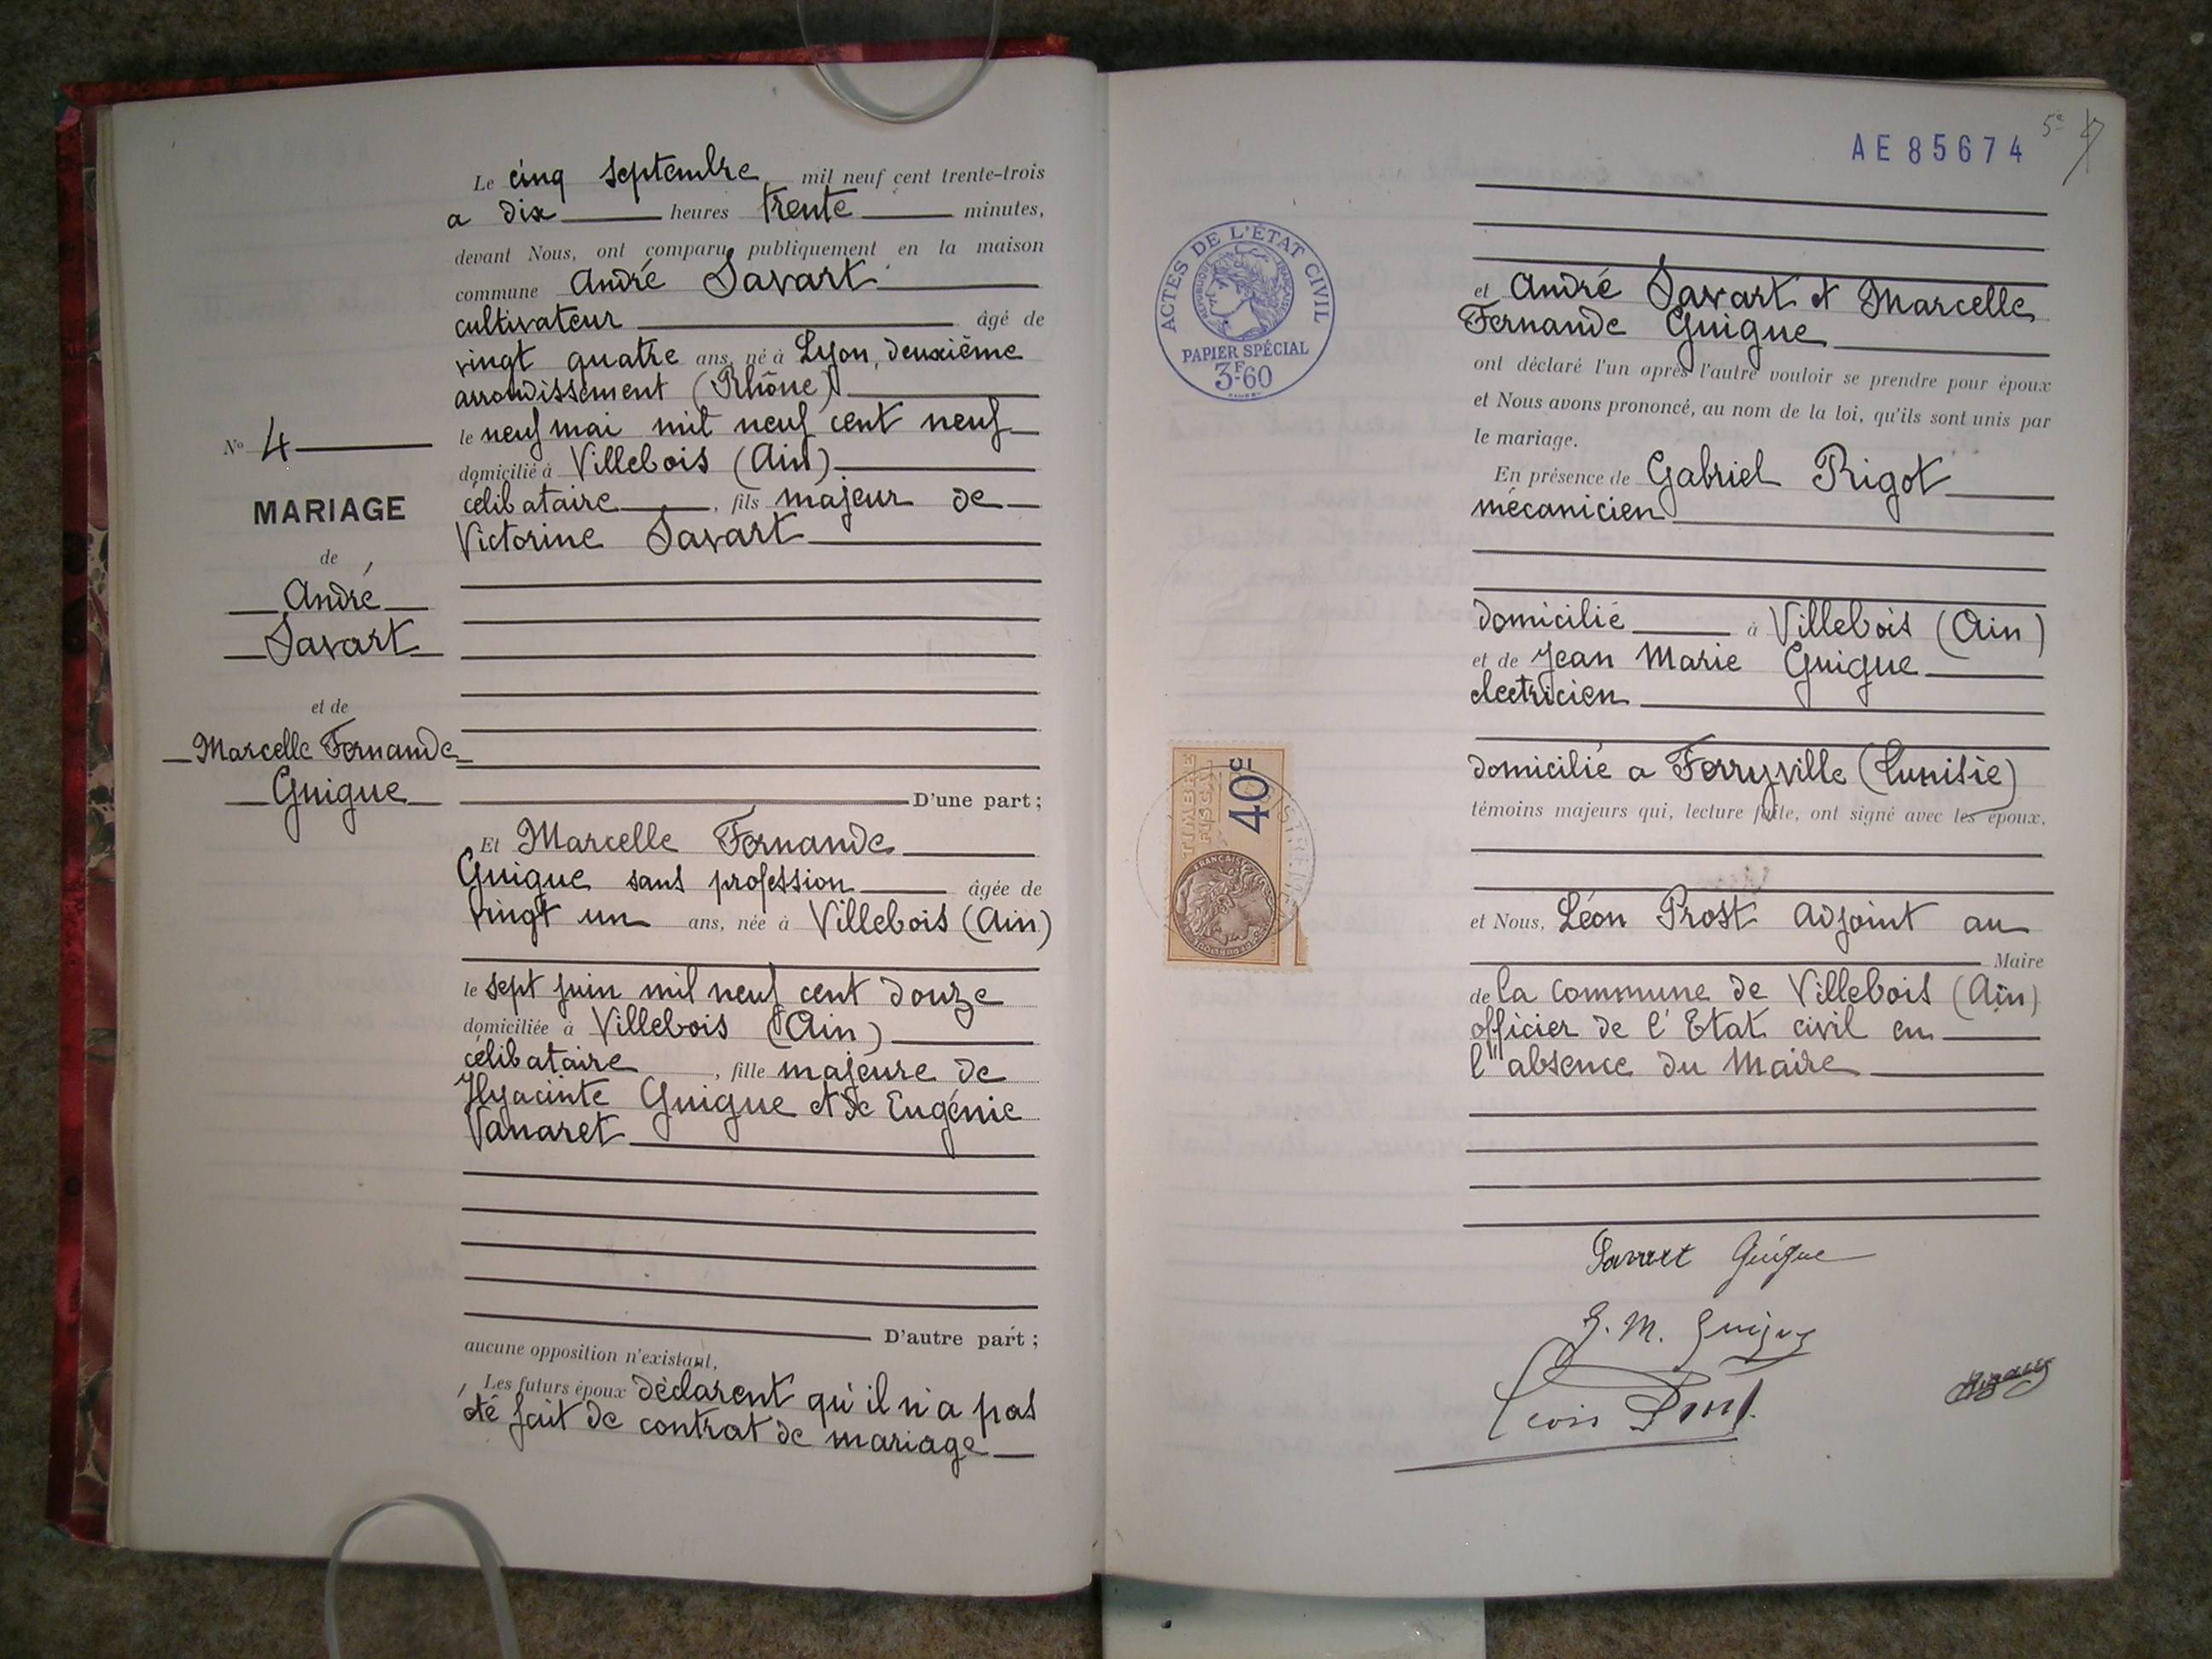 N° 4
MARIAGE
de
André
Savart
et de
Marcelle Fernande
Guigue
Le cinq Septembre mil neuf cent trente-trois
a dix heures trente minutes,
devant Nous, ont comparu publiquement en la maison
commune André Savart
cultivateur âgé de
vingt quatre ans, né à Lyon, deuxième
arrondissement (Rhône)
le neuf mai mil neuf cent neuf
domicilié à Villebois (Ain)
célibataire, fils majeur de
Victorine Savart
D'une part;
Et Marcelle Fernande
Guigue sans profession âgée de
vingt un ans, née à Villebois (Ain)
le sept juin mil neuf cent douze
domiciliée à Villebois (Ain)
célibataire, fille majeure de
Hyacinte Guigue et de Eugénie
Vanaret
D'autre part;
aucune opposition n'existant,
Les futurs époux déclarent qu'il n'a pas
été fait de contrat de mariage
AE 85674
5e
ACTES DE L'ÉTAT CIVIL
RÉPUBLIQUE FRANÇAISE
PAPIER SPÉCIAL
3F-60
et André Savart et Marcelle
Fernande Guigue
ont déclaré l'un après l'autre vouloir se prendre pour époux
et Nous avons prononcé, au nom de la loi, qu'ils sont unis par
le mariage.
En présence de Gabriel Rigot
mécanicien
domicilié à Villebois (Ain)
et de Jean Marie Guigue
electricien
domicilié a Ferryville (Tunisie)
témoins majeurs qui, lecture faite, ont signé avec les époux,
TIMBRE
FISCAL
40c
et Nous, Léon Prost adjoint au
Maire
de la commune de Villebois (Ain)
officier de l'Etat civil en
l"absence du Maire
Savart Guigue
J. M. Guigue
Léon Prost